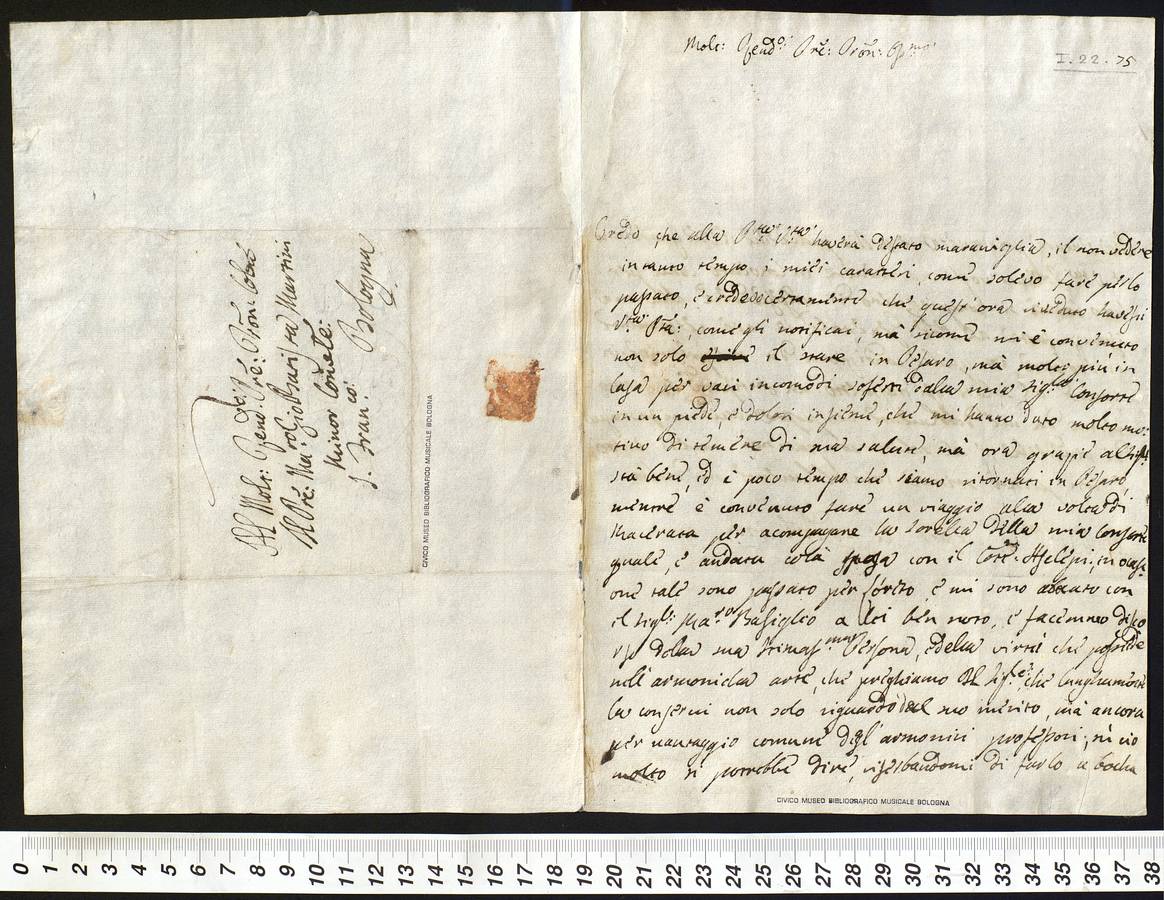 Al Molt: Rend: Pre: Pron: Colmo
Il Pre: Mae: Gio: Batista Martini
Minor Convle:
S. Fran:co: Bologna
CIVICO MUSEO BIBLIOGRAFICO MUSICALE BOLOGNA
Molt: Rend:o Pre: Pron:
I. 22. 75
Credo che alla P:tà V:ra haverà destato maraviglia, il non vedere
in tanto tempo i miei caratteri come solevo fare per lo
passato, e credevo certamente che quest' ora veduto havessi
V:ra P:tà: come gli notificai, mà sicome mi è convenuto
non solo il stare in Pesaro, mà molto più in
Casa per varj incomodi soferti dalla mia Sig:ra Consorte
in un piede, e dolori insieme, che mi hanno dato molto mo:
tivo di temere di sua salute, mà ora grazie al Sig:re
stà bene, ed è poco tempo che siamo ritornati in Pesaro
mentre è convenuto fare un viaggio alla volta di
Macerata per acompagnare la sorella della mia Consorte
quale, è andata colà sposa con il Asclepi, in ocasi
one tale sono passato per Loreto, e mi sono con
il Sig:r Ma:ro Basiglio a lei ben noto, e facemmo disco
rso della sua Stimatis:ma Persona, e della virtù che possiede
nell' armonicha arte, che preghiamo il Sig:re che lungamente
la conservi non solo riguardo del suo merito, mà ancora
per vantaggio comune degl' armonici professori, sù ciò
molto si potrebbe dire, riserbandomi di farlo a bocha
CIVICO MUSEO BIBLIOGRAFICO MUSICALE BOLOGNA
0 1 2 3 4 5 6 7 8 9 10 11 12 13 14 15 16 17 18 19 20 21 22 23 24 25 26 27 28 29 30 31 32 33 34 35 36 37 38